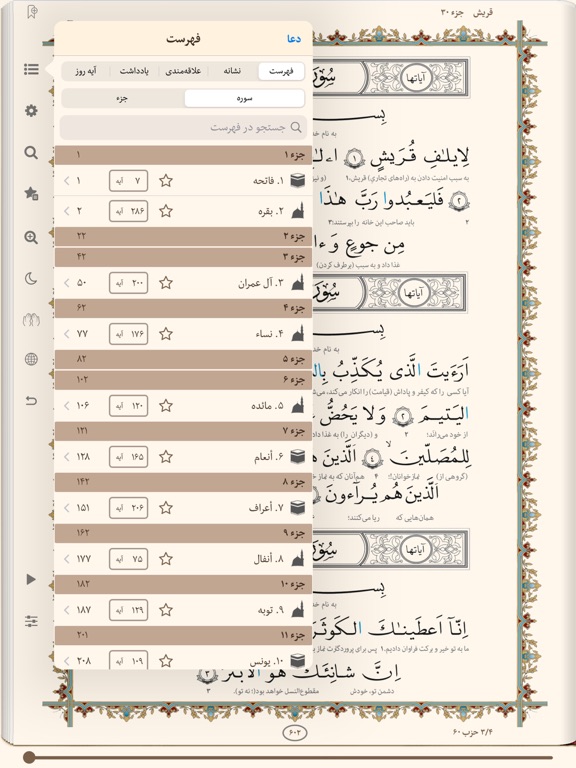 قریش جزء ۳۰
دعا
فهرست
فهرست نشانه علاقه‌مندی یادداشت آیه روز
سوره جزء
جستجو در فهرست
جزء ۱ ۱
۱. فاتحه ۷ آیه ۱
۲. بقره ۲۸۶ آیه ۲
جزء ۲ ۲۲
جزء ۳ ۴۲
۳. آل عمران ۲۰۰ آیه ۵۰
جزء ۴ ۶۲
۴. نساء ۱۷۶ آیه ۷۷
جزء ۵ ۸۲
جزء ۶ ۱۰۲
۵. مائده ۱۲۰ آیه ۱۰۶
جزء ۷ ۱۲۱
۶. أنعام ۱۶۵ آیه ۱۲۸
جزء ۸ ۱۴۲
۷. أعراف ۲۰۶ آیه ۱۵۱
جزء ۹ ۱۶۲
۸. أنفال ۷۵ آیه ۱۷۷
جزء ۱۰ ۱۸۲
۹. توبه ۱۲۹ آیه ۱۸۷
جزء ۱۱ ۲۰۱
۱۰. یونس ۱۰۹ آیه ۲۰۸
آیاتها
به نام
لِإيلـٰفِ قُرَيشٍ ۱
به سبب امنیت دادن به (راه‌های تجاری) قریش،۱
۲ فَليَعبُدوا رَبَّ هـٰذَا
۲ باید صاحب این خانه را بپرستند؛۳
مِن جوعٍ وَ
غذا داد و به سبب (برطرف کردن)
آیاتها
به نام
اَرَءَيتَ الَّذى يُكَذِّبُ
آیا کسی را که کیفر و پاداش (قیامت) را انکار می‌کند،
اليَتيمَ ۲ وَلا يَحُضُّ
از خود می‌راند؛ ۲ و (دیگران را) به غذا
لِلمُصَلّينَ ۴ الَّذينَ
(گروهی از) نمازخوانان؛ ۴ هم‌آنان که به نماز
الَّذينَ هُم يُرآءونَ
همان‌هایی که ریا می‌کنند؛
آیاتها
به نام
اِنّآ اَعطَينـٰكَ الكَوثَرَ
ما به تو خیر و برکت فراوان دادیم.۱ پس برای پروردگارت نماز
اِنَّ شانِئَكَ هُوَ الاَبتَرُ ۳
دشمن تو، خودش مقطوع‌النسل خواهد بود(؛ نه تو). ۳
۶۰۲
۳/۴ حزب ۶۰